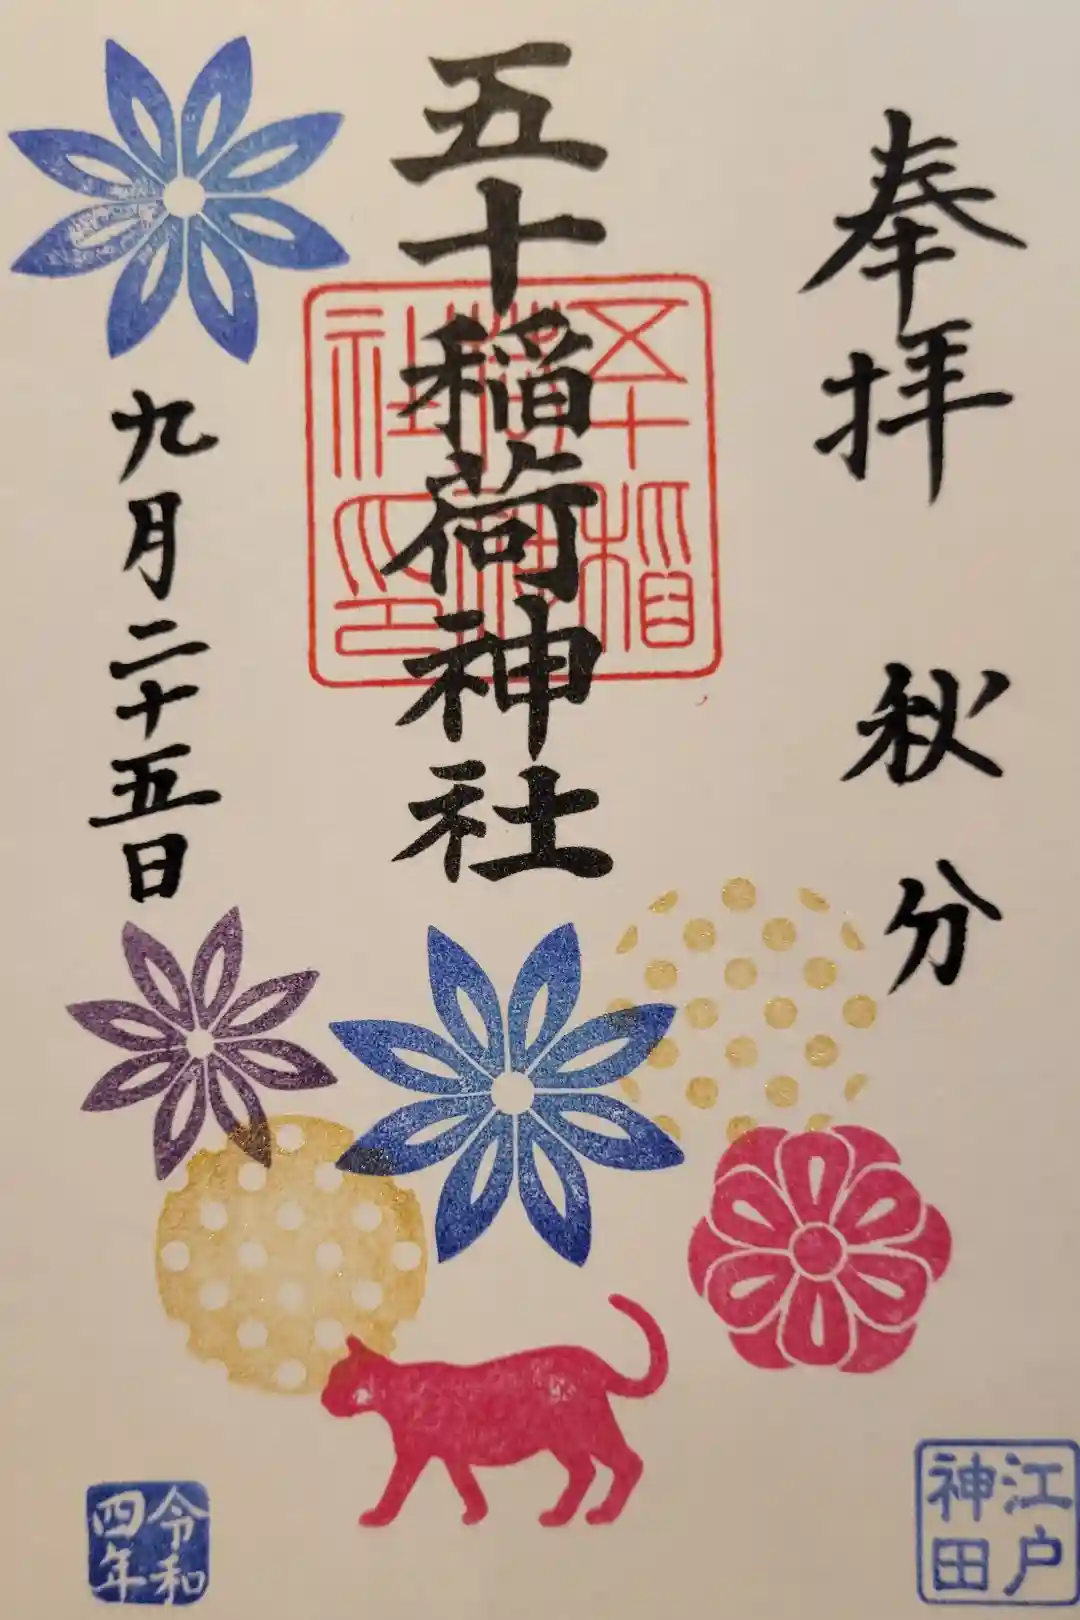 奉拝 秋分
五十稲荷神社
五十稲荷神社印
九月二十五日
江戸神田
令和四年